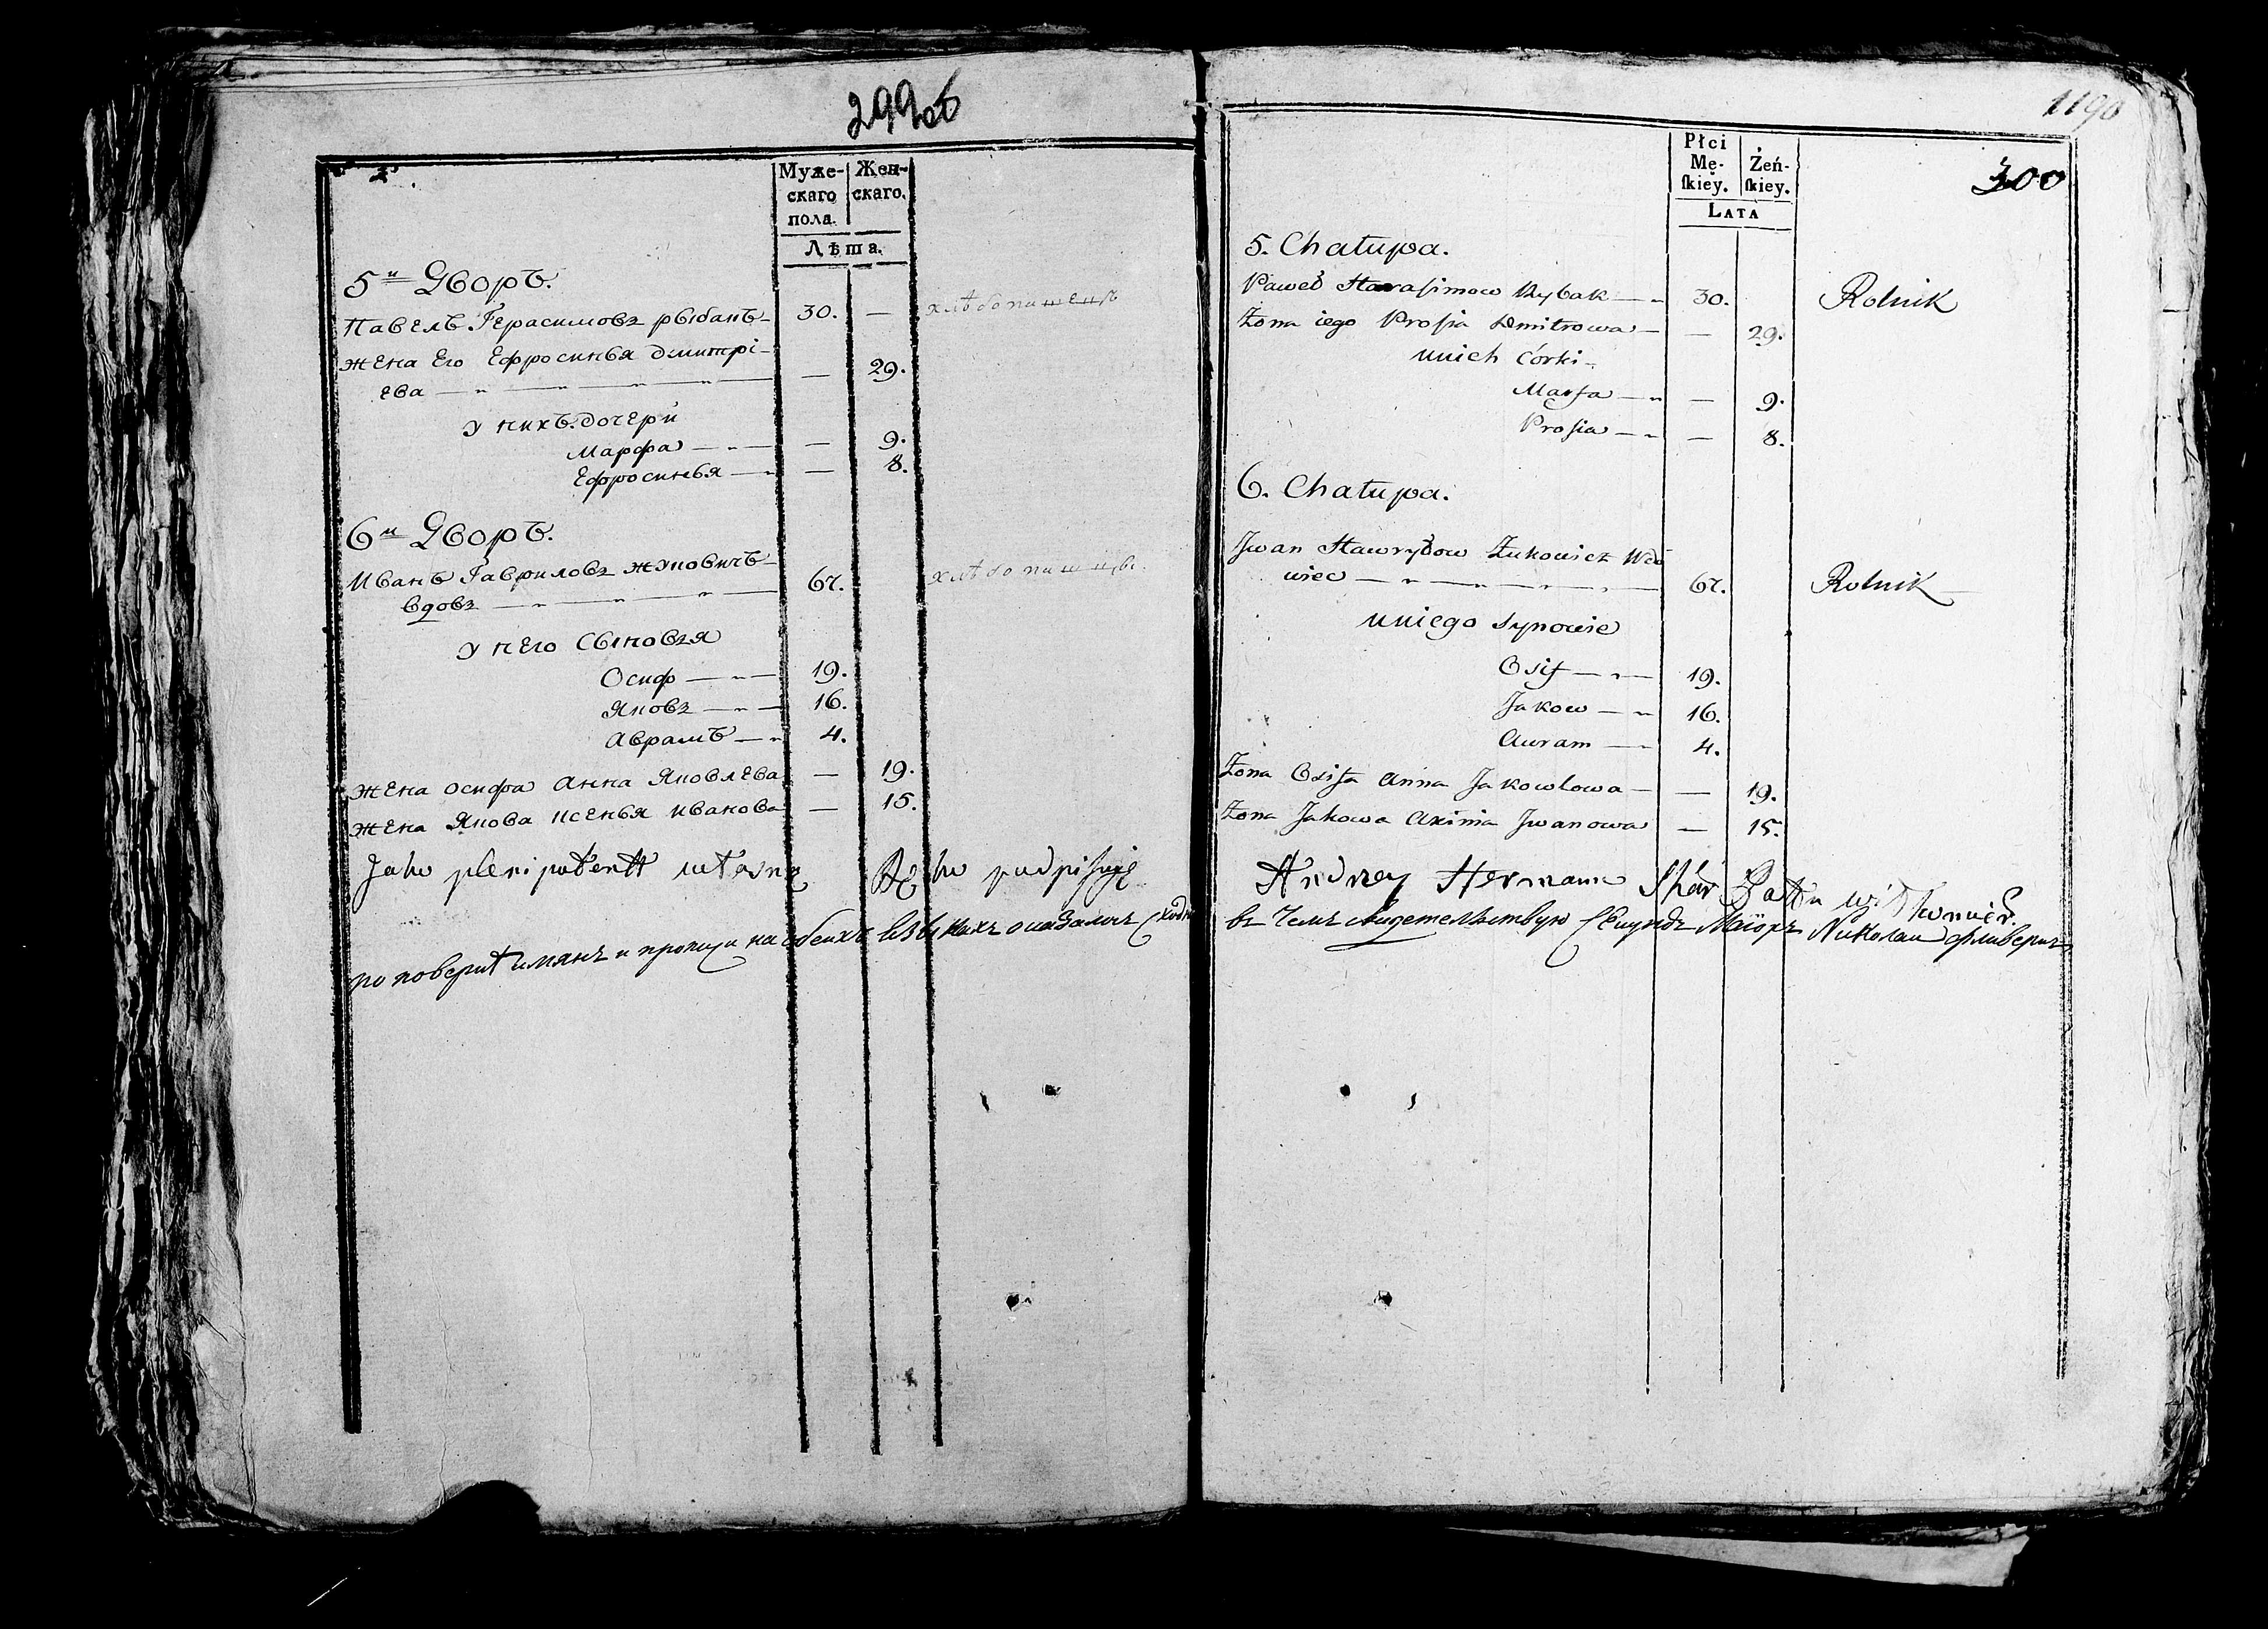 299об
2.
Муже-
скаго
пола.
Жен-
скаго.
Лѣта.
5й Дворъ.
Павелъ Герасимовъ рыбакъ — 30. —
жена Его Ефросинья дмитрі-
ева — — 29.
у нихъ дочери
Марфа — — 9.
Ефросинья — — 8.
6й Дворъ.
Иванъ Гавриловъ жуковичъ
вдовъ — 67.
у него сыновья
Осиф — 19.
Яковъ — 16.
Аврамъ — 4.
жена осифа анна Яковлева — 19.
жена Якова ксенья иванова — 15.
Jako plenipotentt własną Ręko podpisuję
по поверит и на обеихъ
1190
300
Płci
Mę-
ſkiey.
Żeń-
ſkiey.
LATA
5. Chałupa.
Paweł Harasimow Rybak — 30. Rolnik
Żona iego Prosia Dmitrowa — — 29.
unich Córki
Marfa — — 9.
Prosia — — 8.
6. Chałupa.
Jwan Hawryłow Żukowicz Wdo
wiec — 67. Rolnik
uniego synowie
Osif — 19.
Jakow — 16.
Awram — 4.
Żona Osifa Anna Jakowlowa — — 19.
Żona Jakowa Axinia Jwanowa — 15.
Andrzey Hermann
въ Чемъ Свидетельствую Секундъ Маіоръ Николаи